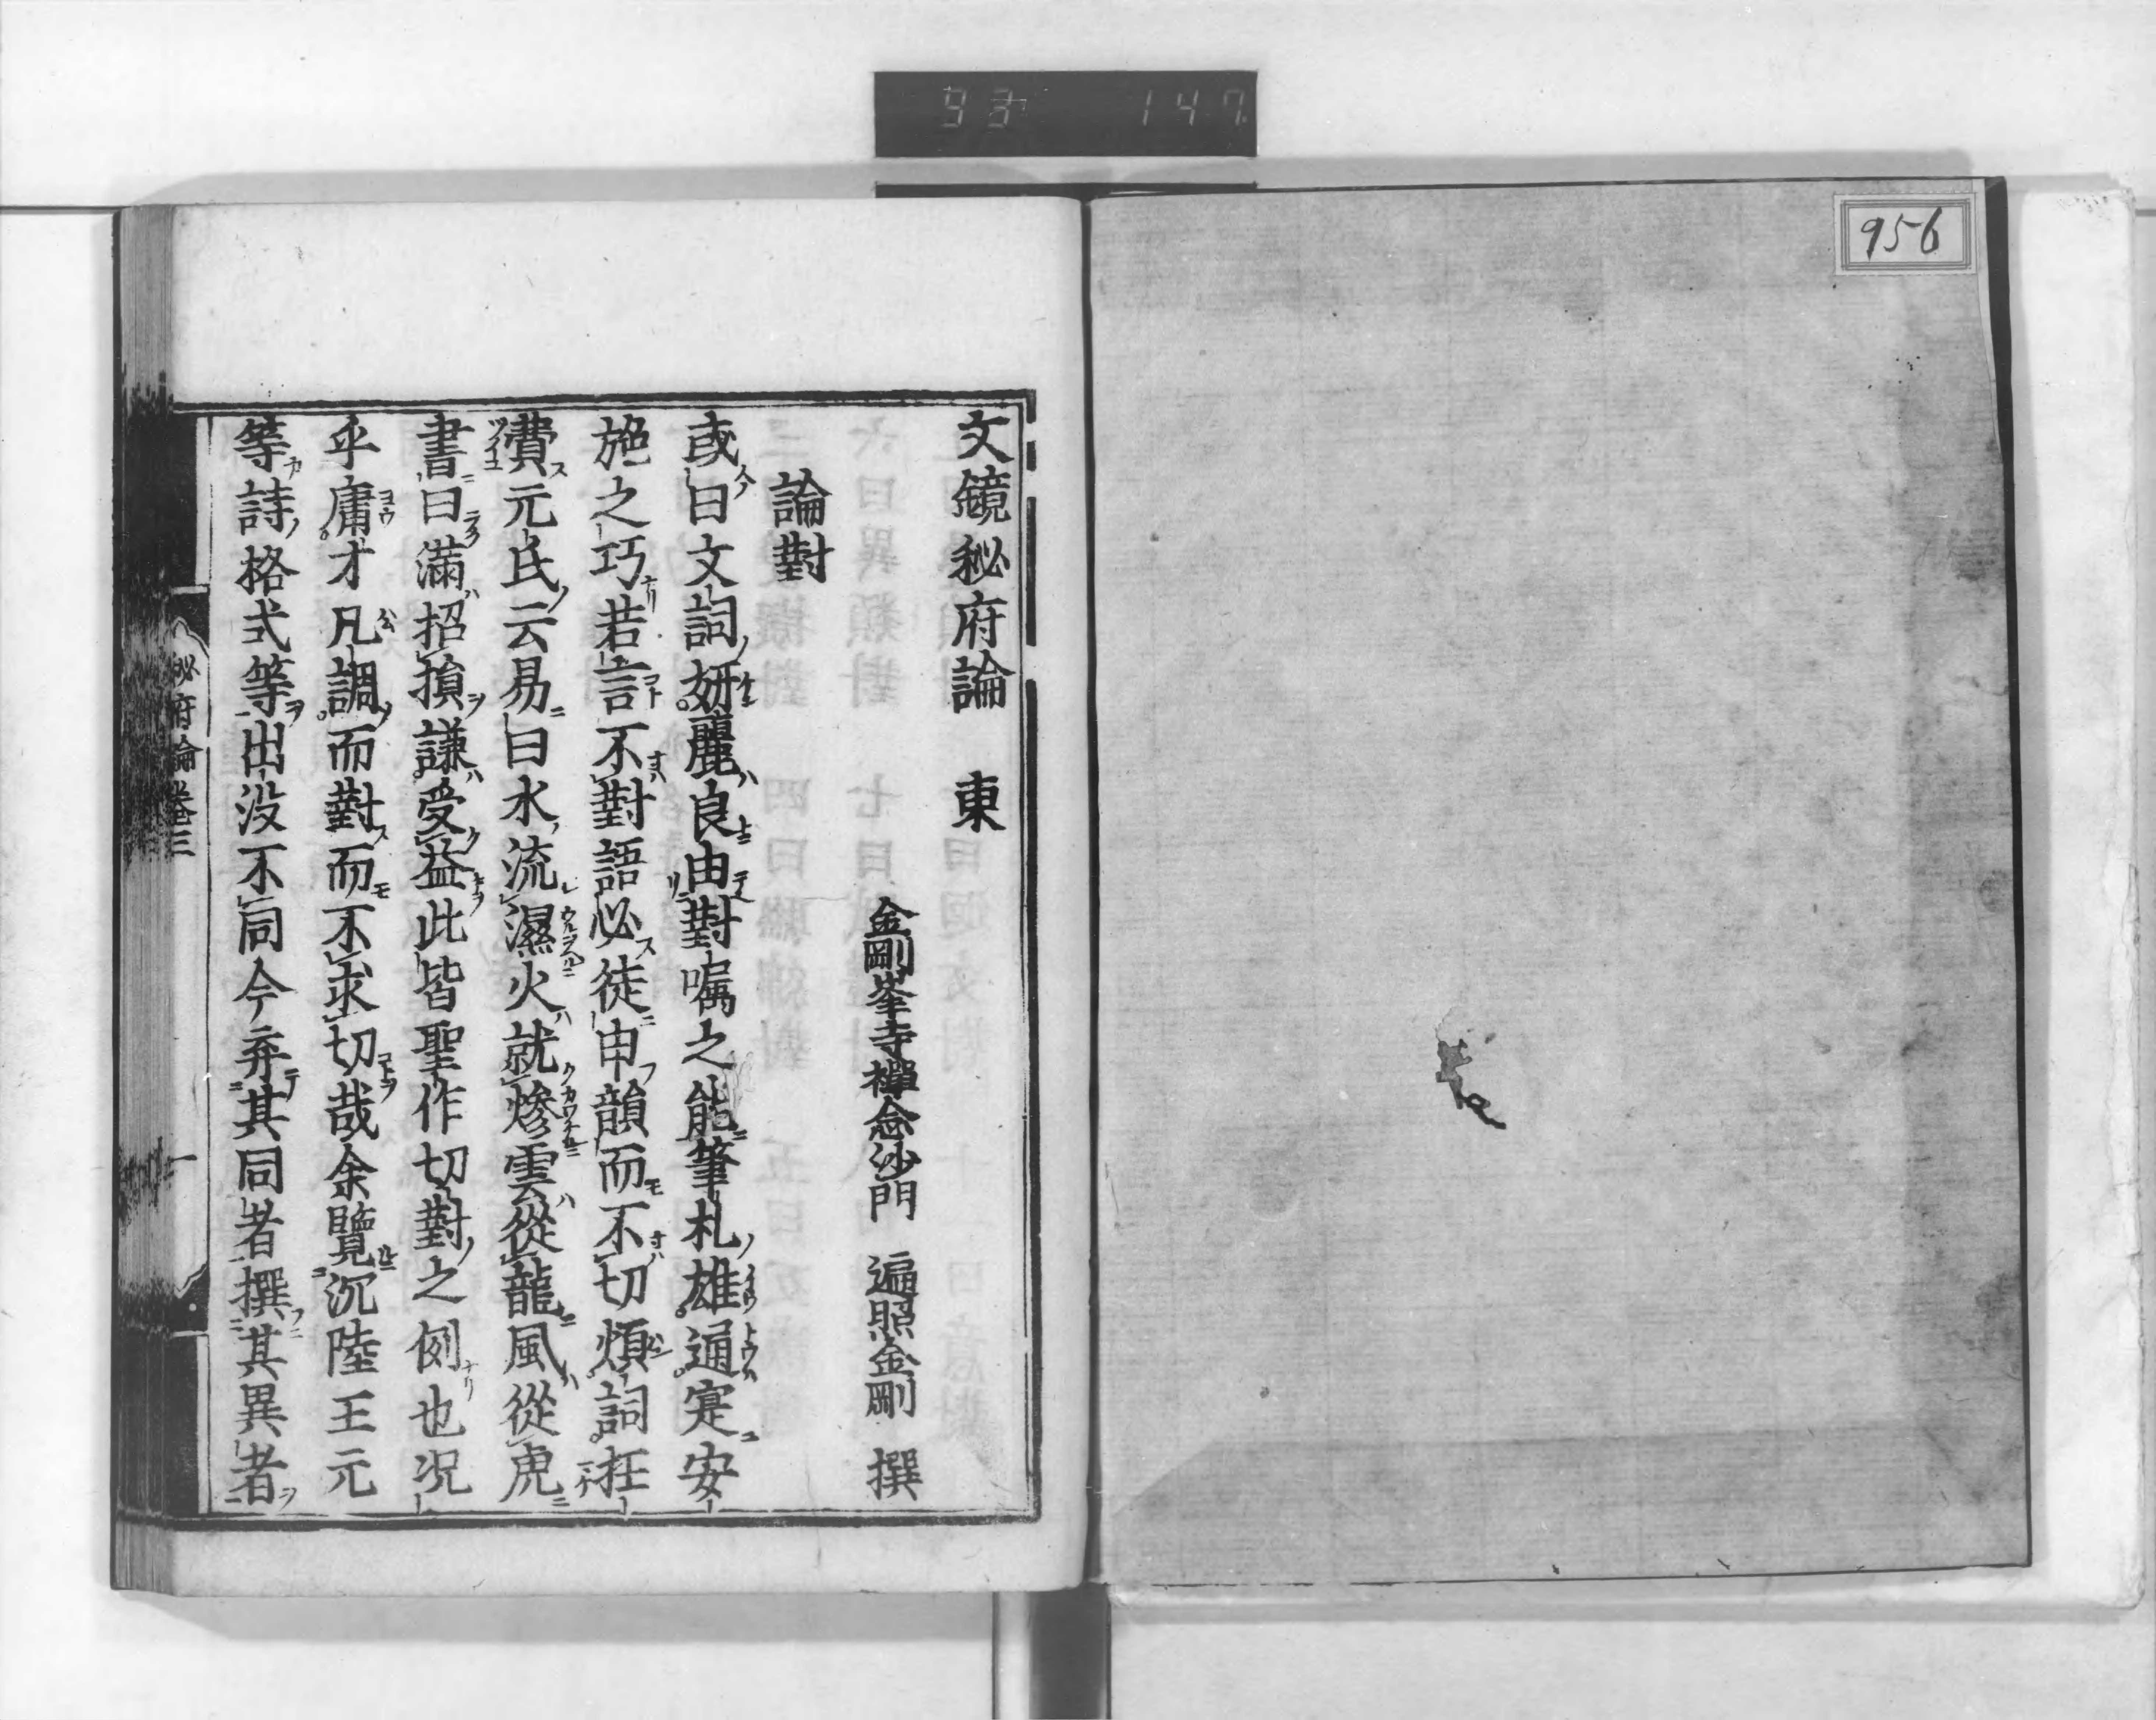 93 147
956
文鏡秘府論 東
金剛峯寺禪念沙門 遍照金剛 撰
論對
或曰文詞妍麗良由對囑之能筆札雄通寔安
施之巧若言不對語必徒申韻而不切煩詞枉
費元氏云易曰水流濕火就燥雲從龍風從虎
書曰滿招損謙受益此皆聖作切對之例也況
乎庸才凡調而對而不求切哉余覽沉陸王元
等詩格式等出没不同今弃其同者撰其異者
秘府論卷三
一